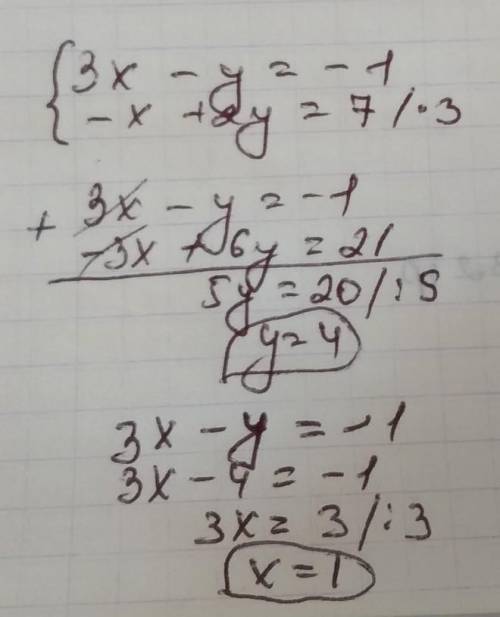 { 3x - y = -1
-x + 2y = 7 / · 3
+ 3x - y = -1
-3x + 6y = 21
5y = 20 / : 5
y = 4
3x - y = -1
3x - 4 = -1
3x = 3 / : 3
x = 1